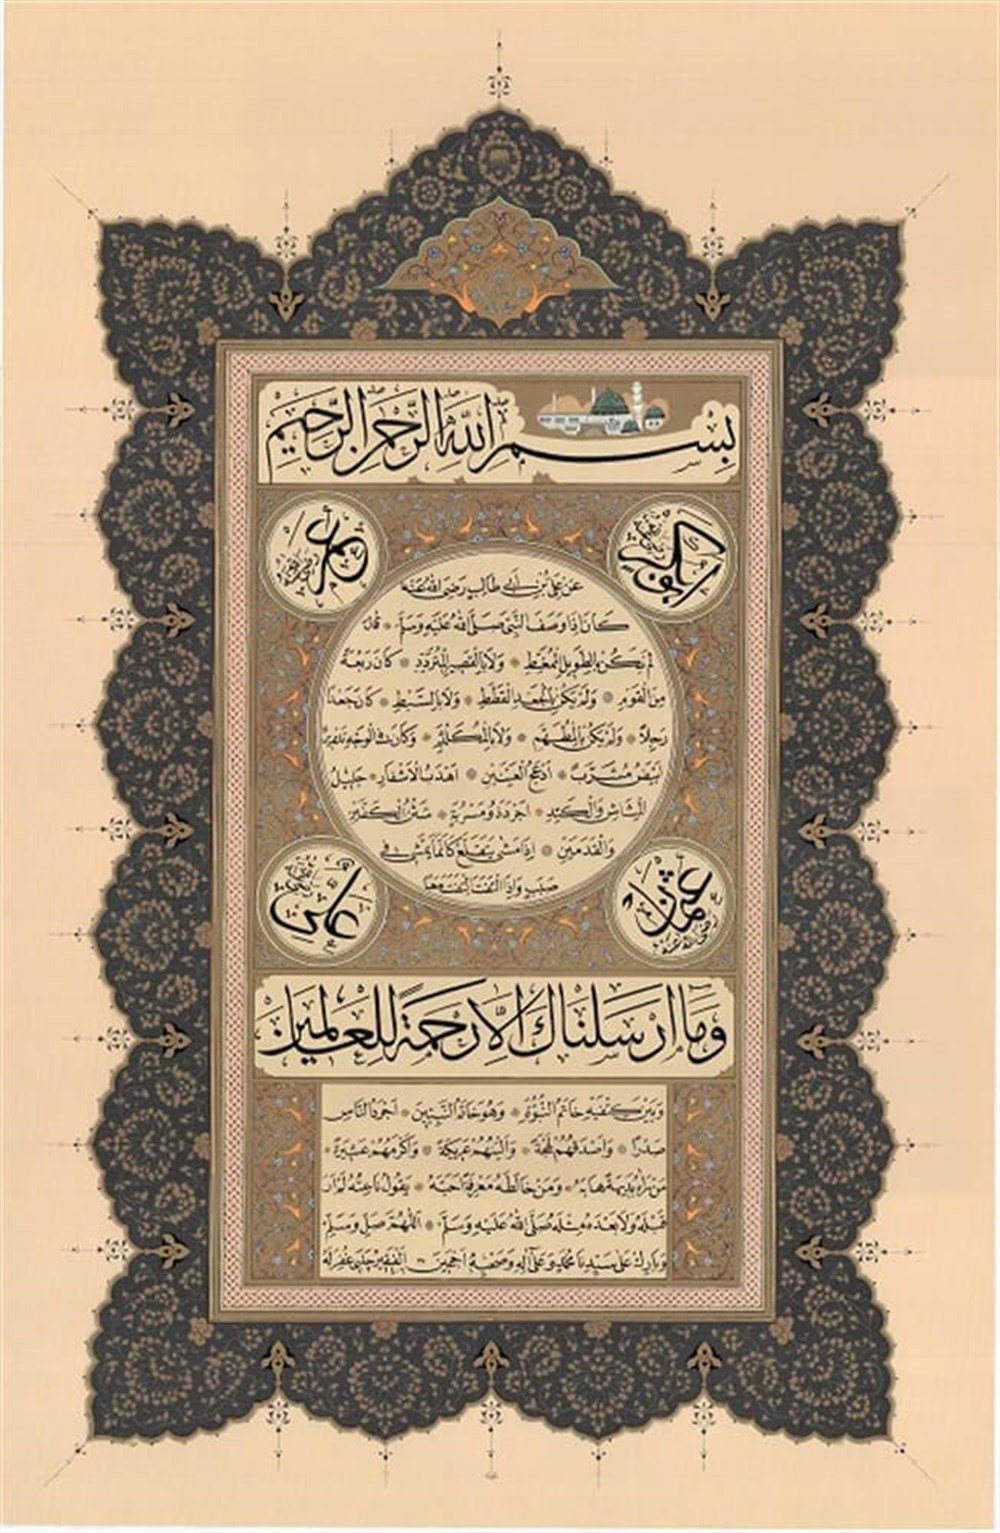 بسم الله الرحمن الرحيم
ابو بكر رضي الله عنه
عمر رضي الله عنه
عن علي بن أبي طالب رضي الله عنه
كان إذا وصف النبي صلى الله عليه وسلم قال
لم يكن بالطويل الممغط ولا بالقصير المتردد كان ربعة
من القوم ولم يكن بالجعد القطط ولا بالسبط كان جعدا
رجلا ولم يكن بالمطهم ولا بالمكلثم وكان في الوجه تدوير
ابيض مشرب ادعج العينين اهدب الاشفار جليل
المشاش والكتد اجرد ذو مسربة شثن الكفين
والقدمين إذا مشى يتقلع كأنما يمشي في
صبب وإذا التفت التفت معا
عثمان رضي الله عنه
علي رضي الله عنه
وما ارسلناك الا رحمة للعالمين
وبين كتفيه خاتم النبوة وهو خاتم النبيين اجود الناس
صدرا واصدقهم لهجة والينهم عريكة واكرمهم عشيرة
من رآه بديهة هابه ومن خالطه معرفة احبه يقول ناعته لم ار
قبله ولا بعده مثله صلى الله عليه وسلم اللهم صل وسلم
وبارك على سيدنا محمد وعلى آله وصحبه اجمعين الفقير حلمي غفر له